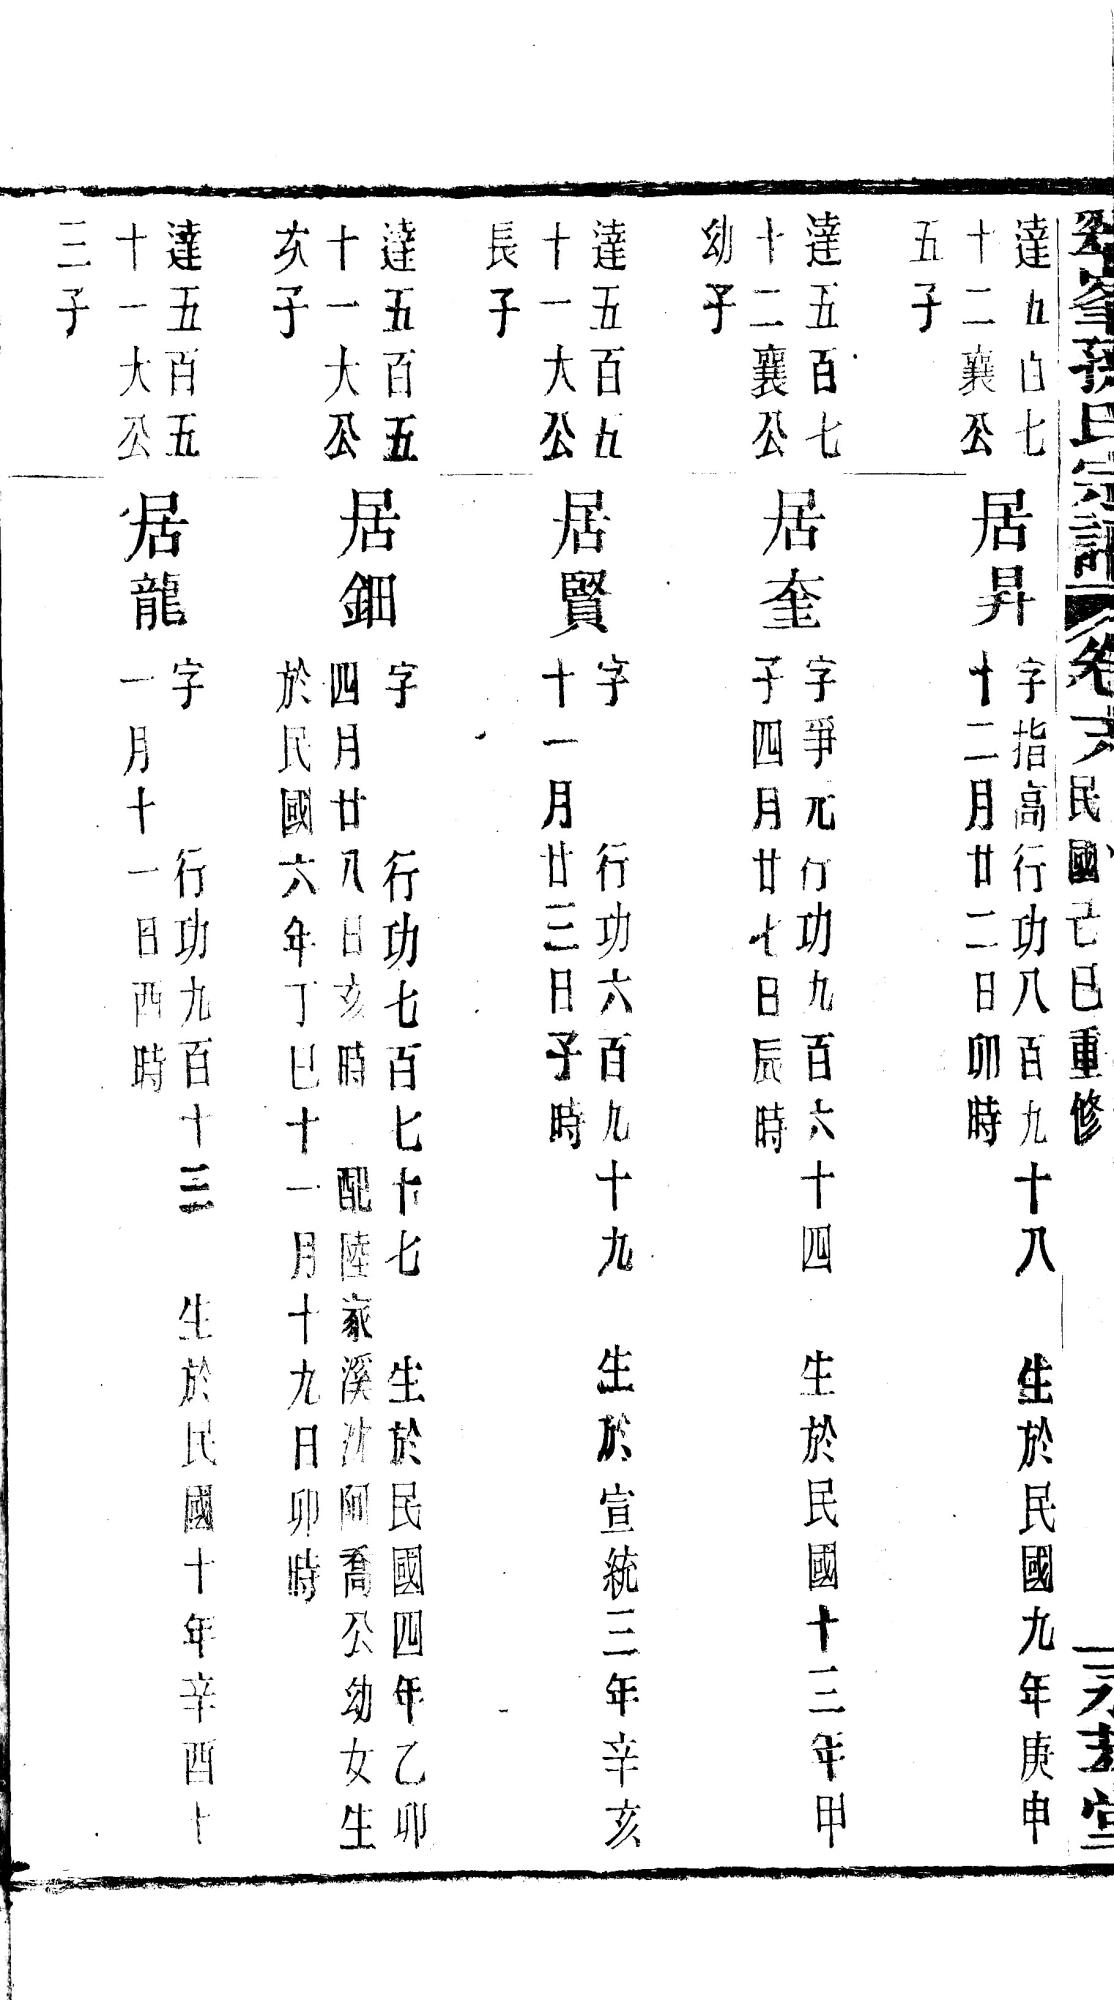 孫氏宗譜
卷六
民國己巳重修
達五百七
十二襄公
五子
居昇
字指高行功八百九十八 生於民國九年庚申
十二月廿二日卯時
達五百七
十二襄公
幼子
居奎
字爭元行功九百六十四 生於民國十三年甲
子四月廿七日辰時
達五百五
十一大公
長子
居賢
字 行功六百九十九 生於宣統三年辛亥
十一月廿三日子時
達五百五
十一大公
次子
居鈿
字 行功七百七十七 生於民國四年乙卯
四月廿八日亥時 配陸家溪沈阿喬公幼女生
於民國六年丁巳十一月十九日卯時
達五百五
十一大公
三子
居龍
字 行功九百十三 生於民國十年辛酉十
一月十一日酉時